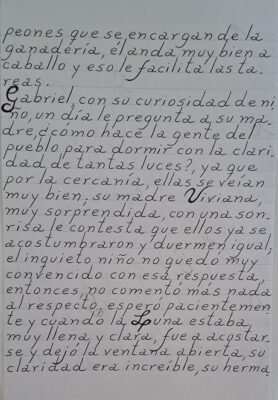 peones que se, encargan de la
ganadería, él anda muy bien a
caballo y eso le facilita las ta-
reas.
Gabriel, con su curiosidad de ni-
ño, un día le pregunta a su ma-
dre, ¿cómo hace la gente del
pueblo para dormir con la clari-
dad de tantas luces?, ya que
por la cercanía, ellas se veían
muy bien; su madre Viviana,
muy sorprendida, con una son-
risa le contesta que ellos ya se
acostumbraron y duermen igual,
el inquieto niño no quedó muy
convencido con esa respuesta,
entonces, no comentó más nada
al respecto, esperó pacientemen
te y cuando la Luna estaba
muy llena y clara, fue a acostar-
se y dejó la ventana abierta, su
claridad era increíble, su herma